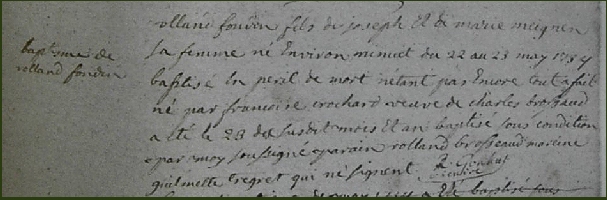 baptesme de
rolland fonden
rolland fonden fils de joseph Et de marie meignen
sa femme né Environ minuit du 22 au 23 may
baptisé En peril de mort nétant pas Encore tout a fait
né par francoise crochard veuve de charles brossaud
a été le 23 des susdit mois Et an baptisé sous condition
par moy soussigné parain rolland brosseaud mareine
guilmette tregret qui né signent